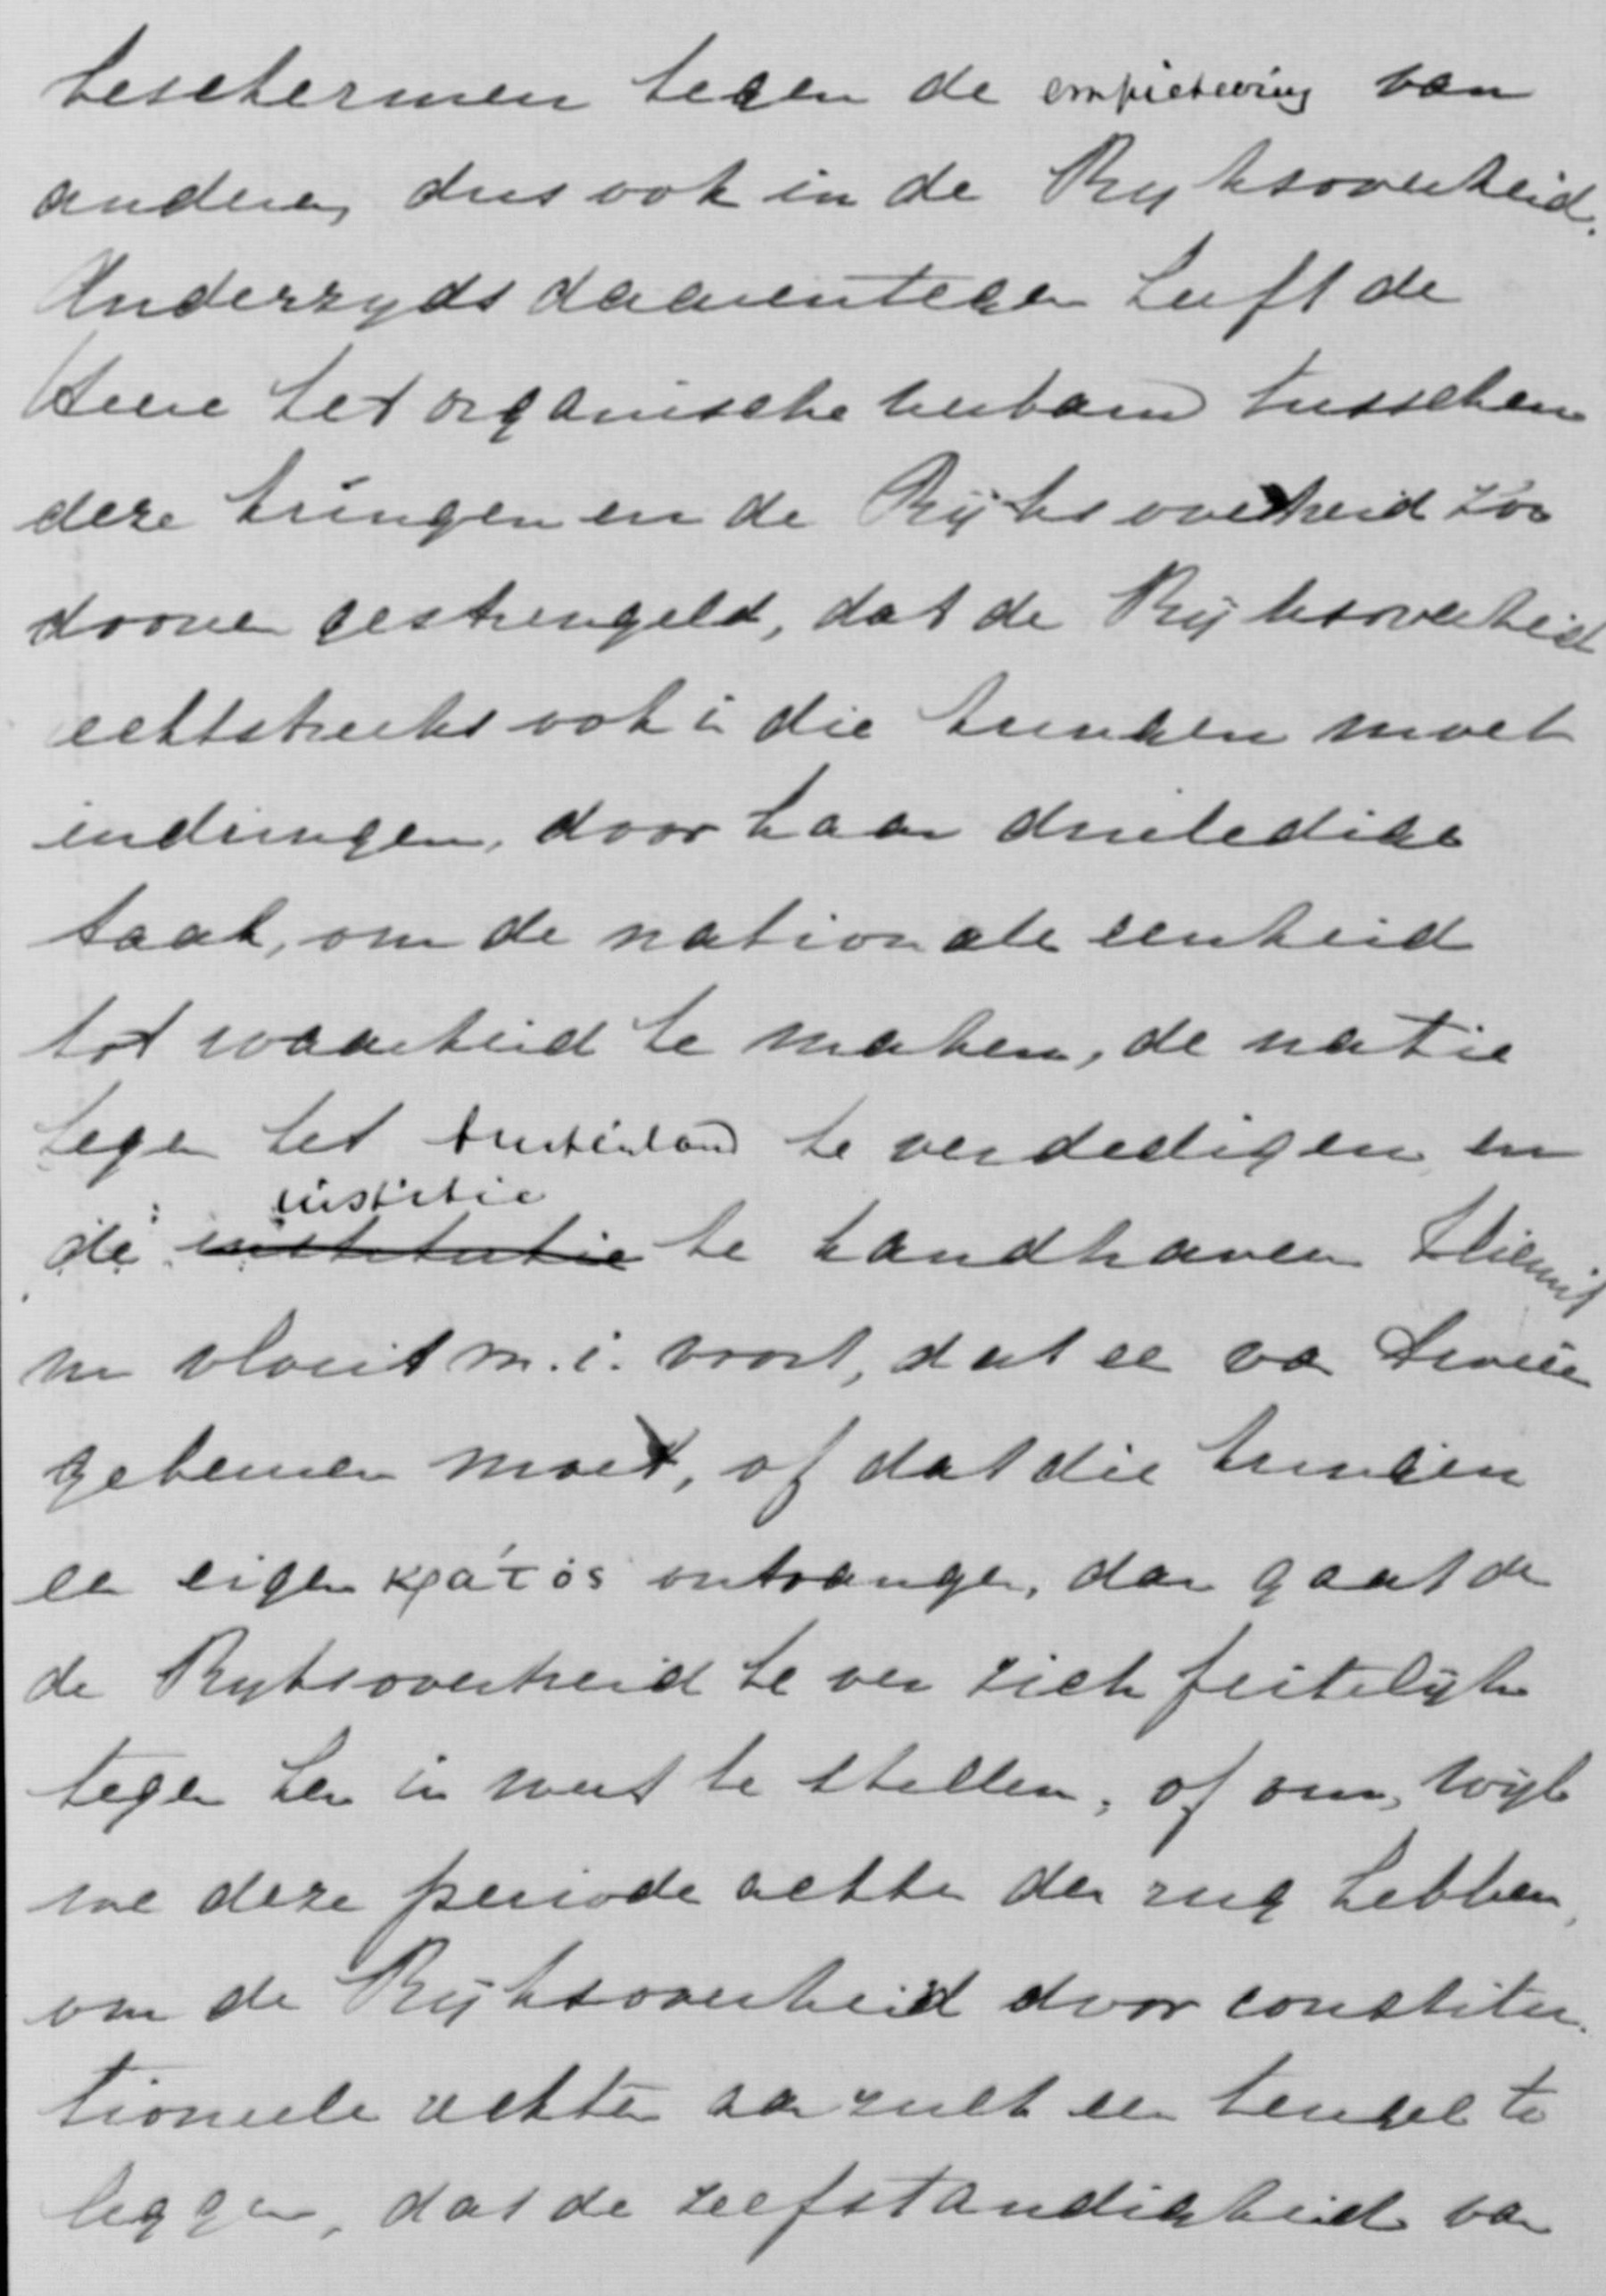 beschermen tegen de empietering van
anderen, dus ook in de Rijksoverheid.
Anderzyds daarentegen heeft de
Heere het organische verband tusschen
deze kringen en de Rijksoverheid zoo
dooreen gestrengeld, dat de Rijksoverheid
echtstreeks ook in die kringen moet
indringen, door haar drieledige
taak, om de nationale eenheid
tot waarheid te maken, de natie
tegen het buitenland te verdedigen en
de justitie te handhaven Hieruit
nu vloeit m.i. voort, dat een van tweeën
gebeuren moet, of dat die kringen
een eigen κράτος ontvangen, dan gaat de
de Rijksoverheid te ver zich feitelijk
tegen hen in weer te stellen, of om, wijl
we deze periode achter den rug hebben,
om de Rijksoverheid door constitu-
tioneele rechten aan zulk een teugel te
leggen, dat de zelfstandigheid van